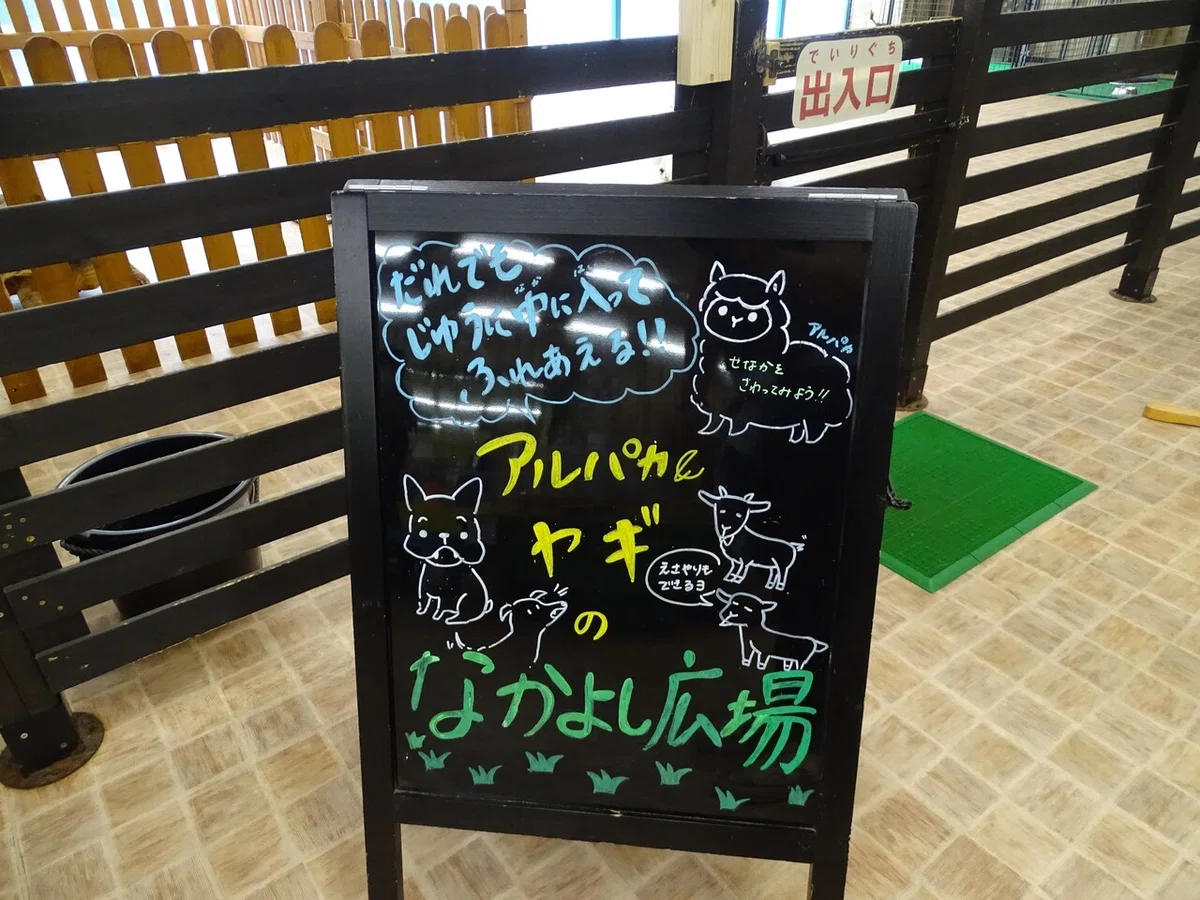 でいりぐち
出入口
だれでも
じゆうに中に入って
ふれあえる!!
アルパカ
せなかを
さわってみよう!!
アルパカと
ヤギ
えさやりも
できるヨ
の
なかよし広場